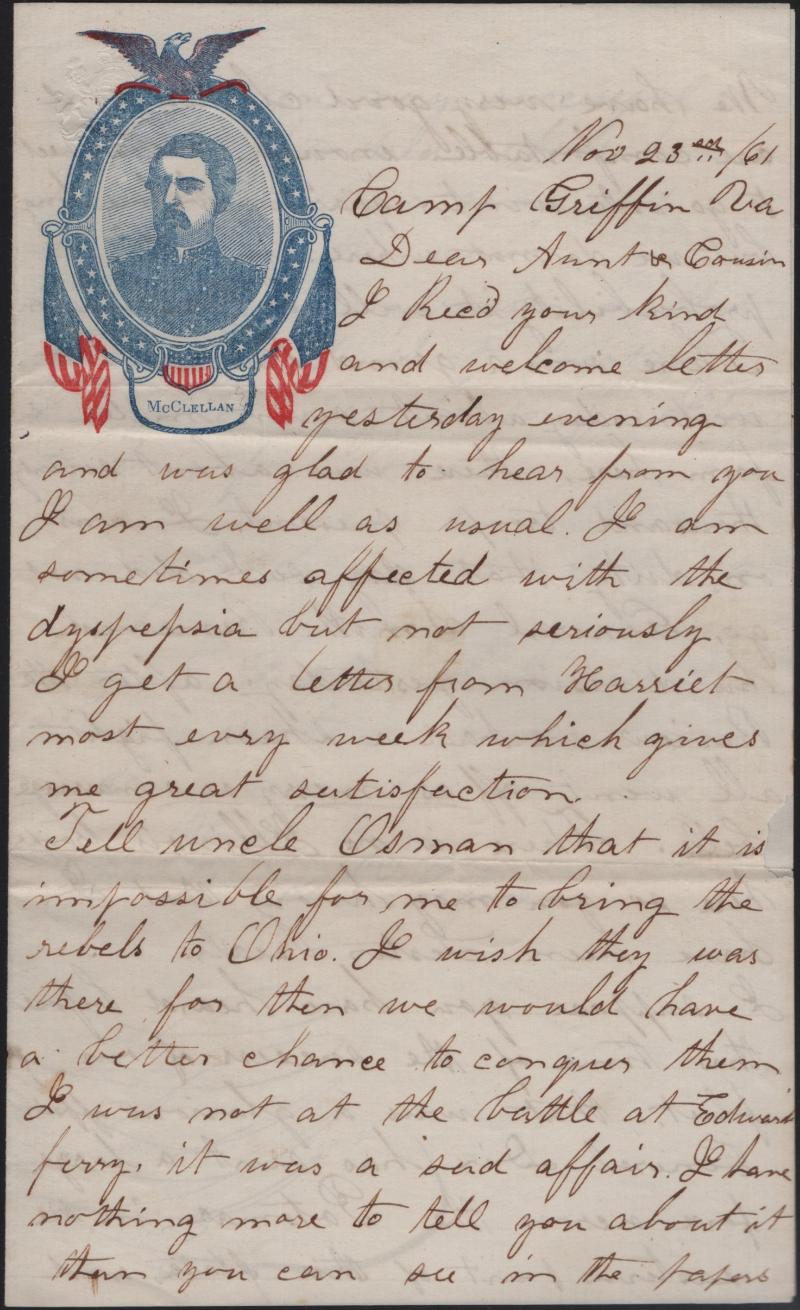 Nov 23rd /61
Camp Griffin Va
Dear Aunt & Cousin
I Rec'd your kind
and welcome letter
yesterday evening
McCLELLAN
and was glad to hear from you
I am well as usual. I am
sometimes affected with the
dyspepsia but not seriously
I get a letter from Harriet
most evry week which gives
me great satisfaction.
Tell uncle Osman that it is
impossible for me to bring the
rebels to Ohio. I wish they was
there for then we would have
a better chance to conquer them
I was not at the battle at Edward
ferry. it was a sad affair. I have
nothing more to tell you about it
than you can see in the papers